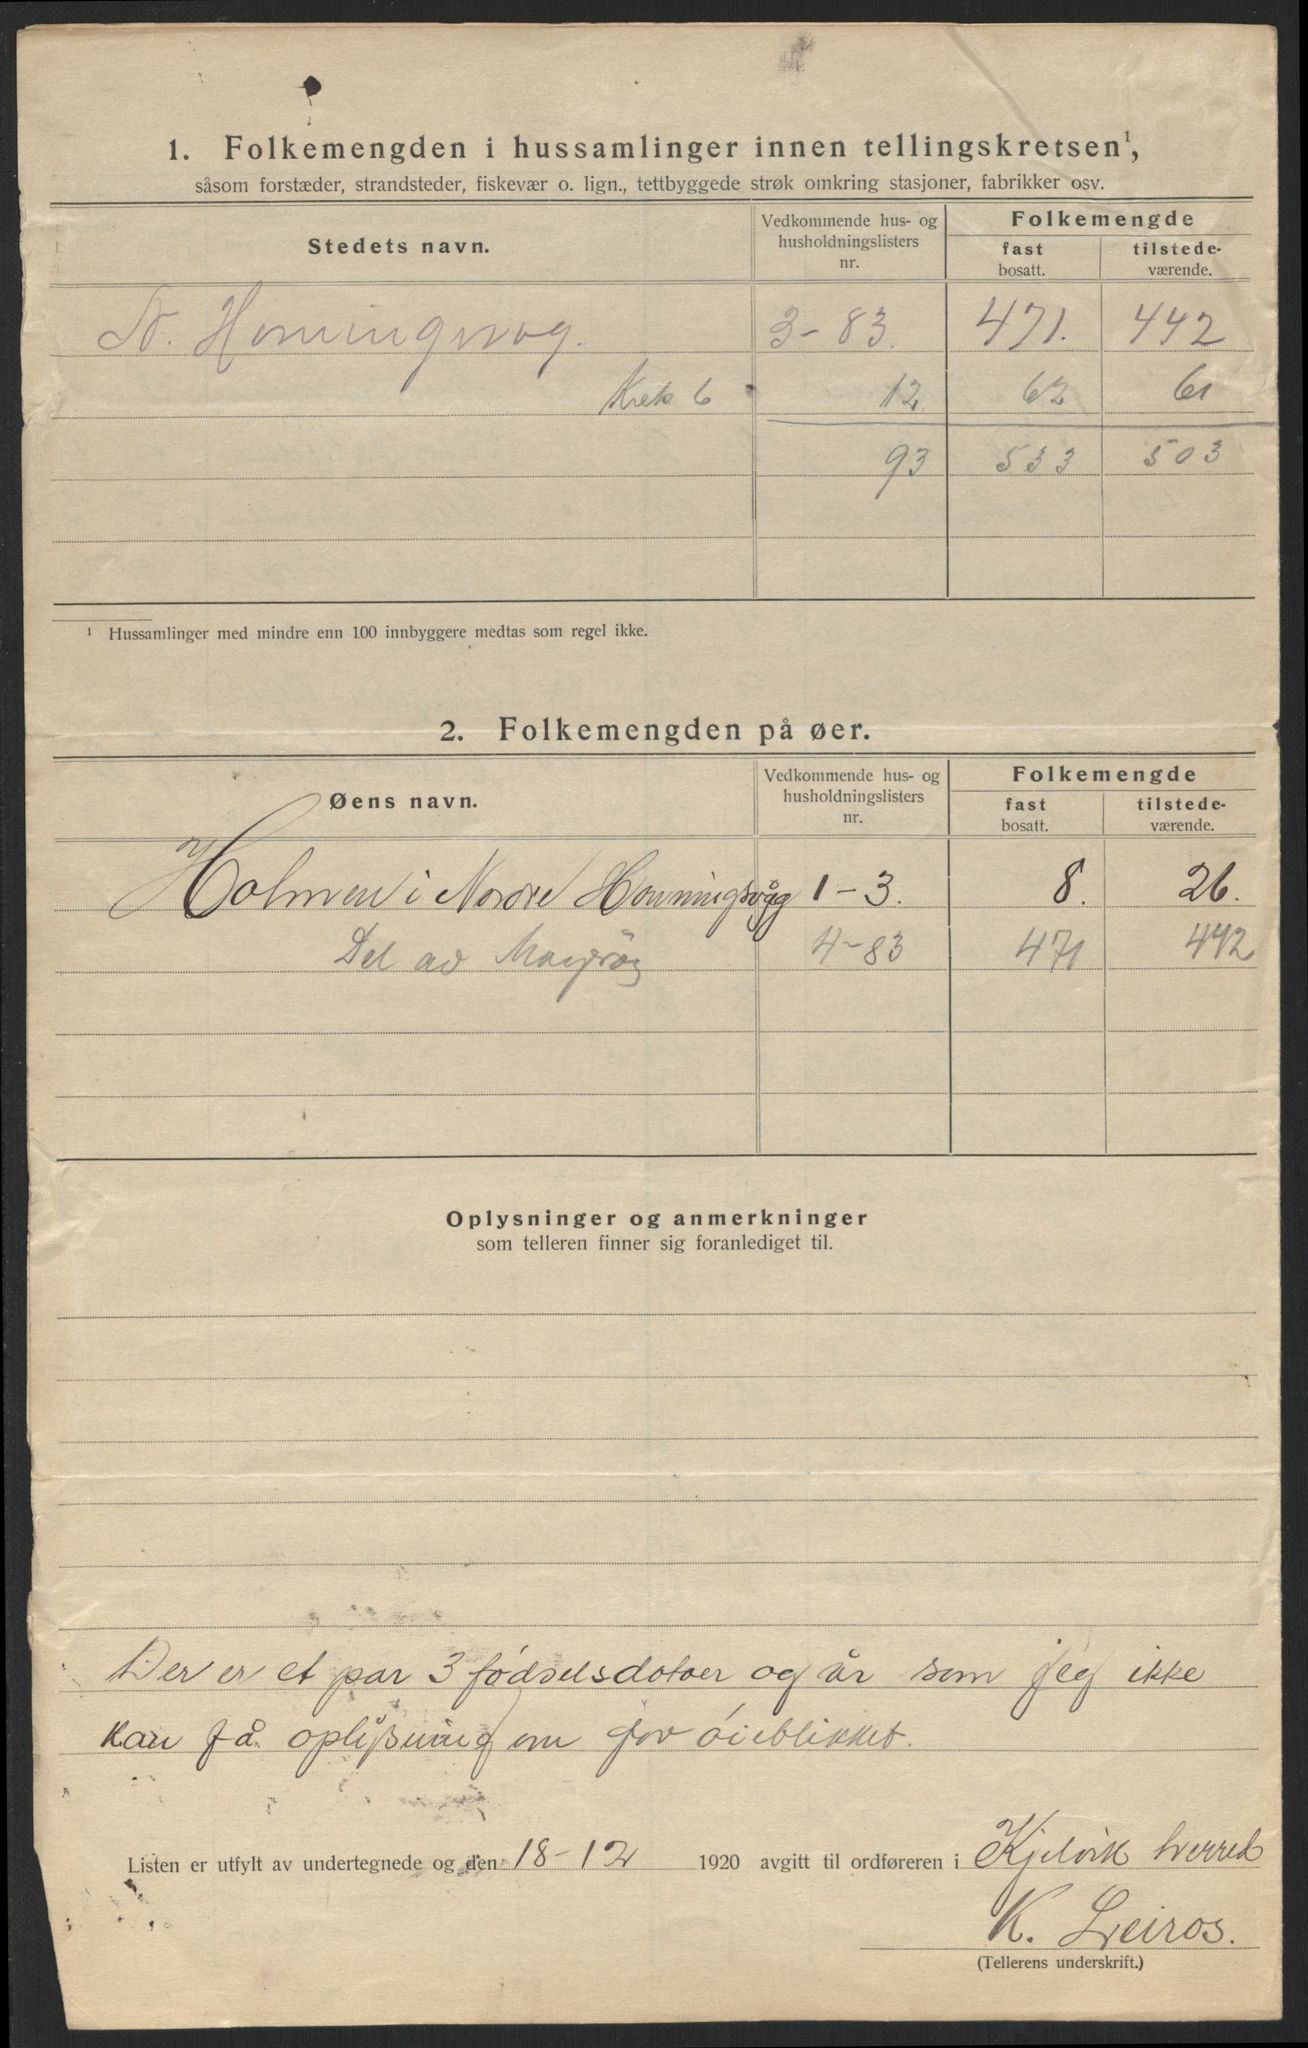 1. Folkemengden i hussamlinger innen tellingskretsen¹,
såsom forstæder, strandsteder, fiskevær o. lign., tettbyggede strøk omkring stasjoner, fabrikker osv.
Stedets navn.
Vedkommende hus- og
husholdningslisters
nr.
Folkemengde
fast
bosatt.
tilstede-
værende.
N. Honningsvog. 3-83. 471. 442
Krets 6 12 62 61
93 533 503
¹ Hussamlinger med mindre enn 100 innbyggere medtas som regel ikke.
2. Folkemengden på øer.
Øens navn.
Vedkommende hus- og
husholdningslisters
nr.
Folkemengde
fast
bosatt.
tilstede-
værende.
Holmen i Nordre Honningsvåg 1-3. 8. 26.
Del av Magerøy 4-83 471 442
Oplysninger og anmerkninger
som telleren finner sig foranlediget til.
Der er et par 3 fødselsdatoer og år som jeg ikke
kan få oplysning om for øieblikket.
Listen er utfylt av undertegnede og den 18-12 1920 avgitt til ordføreren i Kjelvik herred
K. Leiros.
(Tellerens underskrift.)